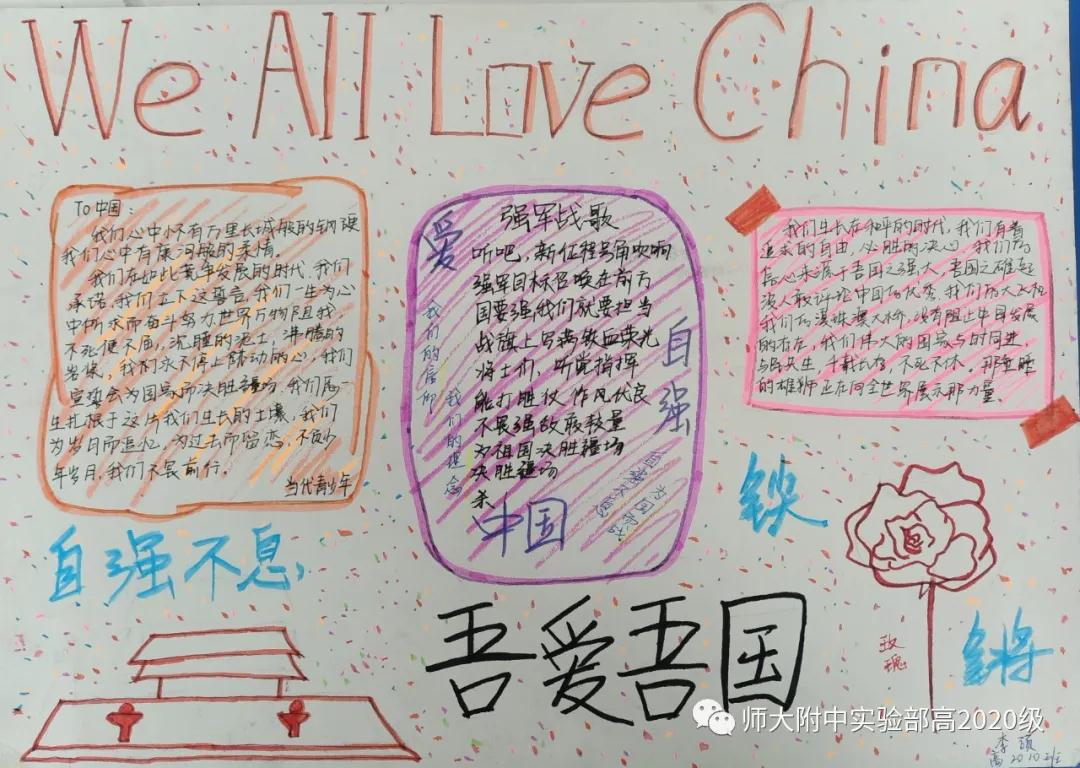 We All Love China
To中国:
我们心中怀有万里长城般的钢强
我们心中有康河般的柔情。
我们在如此繁华发展的时代,我们
承诺,我们立下这誓言,我们一生为心
中所求而奋斗努力世界万物阻我,
不死便不屈,沉睡的泥土,沸腾的
岩浆,我们永不停止跳动的心,我们
宣誓会为国家而决胜疆场,我们用一
生扎根于这片我们生长的土壤,我们
为岁月而追忆,为过去而留恋,不负少
年岁月,我们不畏前行。
当代青少年
爱
我们的信仰
我们的理念
强军战歌
听吧,新征程号角吹响
强军目标召唤在前方
国要强我们就要担当
战旗上写满铁血荣光
将士们,听党指挥
能打胜仗 作风优良
不畏强敌敢较量
为祖国决胜疆场
决胜疆场
杀
自强
自强不息
为国而战
中国
我们生长在和平的时代,我们有着
追求的自由,必胜的决心,我们的
信心来源于吾国之强大,吾国之雄起
没人敢评论中国的优秀,我们的大飞机
我们的港珠澳大桥,没有阻止中国发展
的存在,我们伟大的国家与时同进,
与民共生,千载长存,不死不休。那沉睡
的雄狮正在向全世界展示那力量。
自强不息,
吾爱吾国
玫
瑰
师大附中实验部高2020级
李硕
高2010班